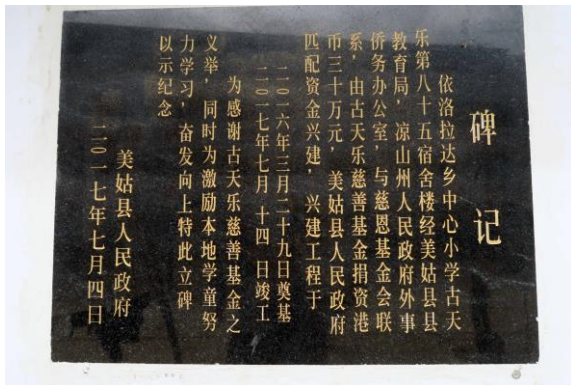 碑记
依洛拉达乡中心小学古天
乐第八十五宿舍楼经美姑县县
教育局，凉山州人民政府外事
侨务办公室，与慈恩基金会联
系，由古天乐慈善基金捐资港
币三十万元，美姑县人民政府
匹配资金兴建，兴建工程于
二○一六年三月二十九日奠基
二○一七年七月十四日竣工
为感谢古天乐慈善基金之
义举，同时为激励本地学童努
力学习，奋发向上特此立碑
以示纪念
美姑县人民政府
二○一七年七月四日